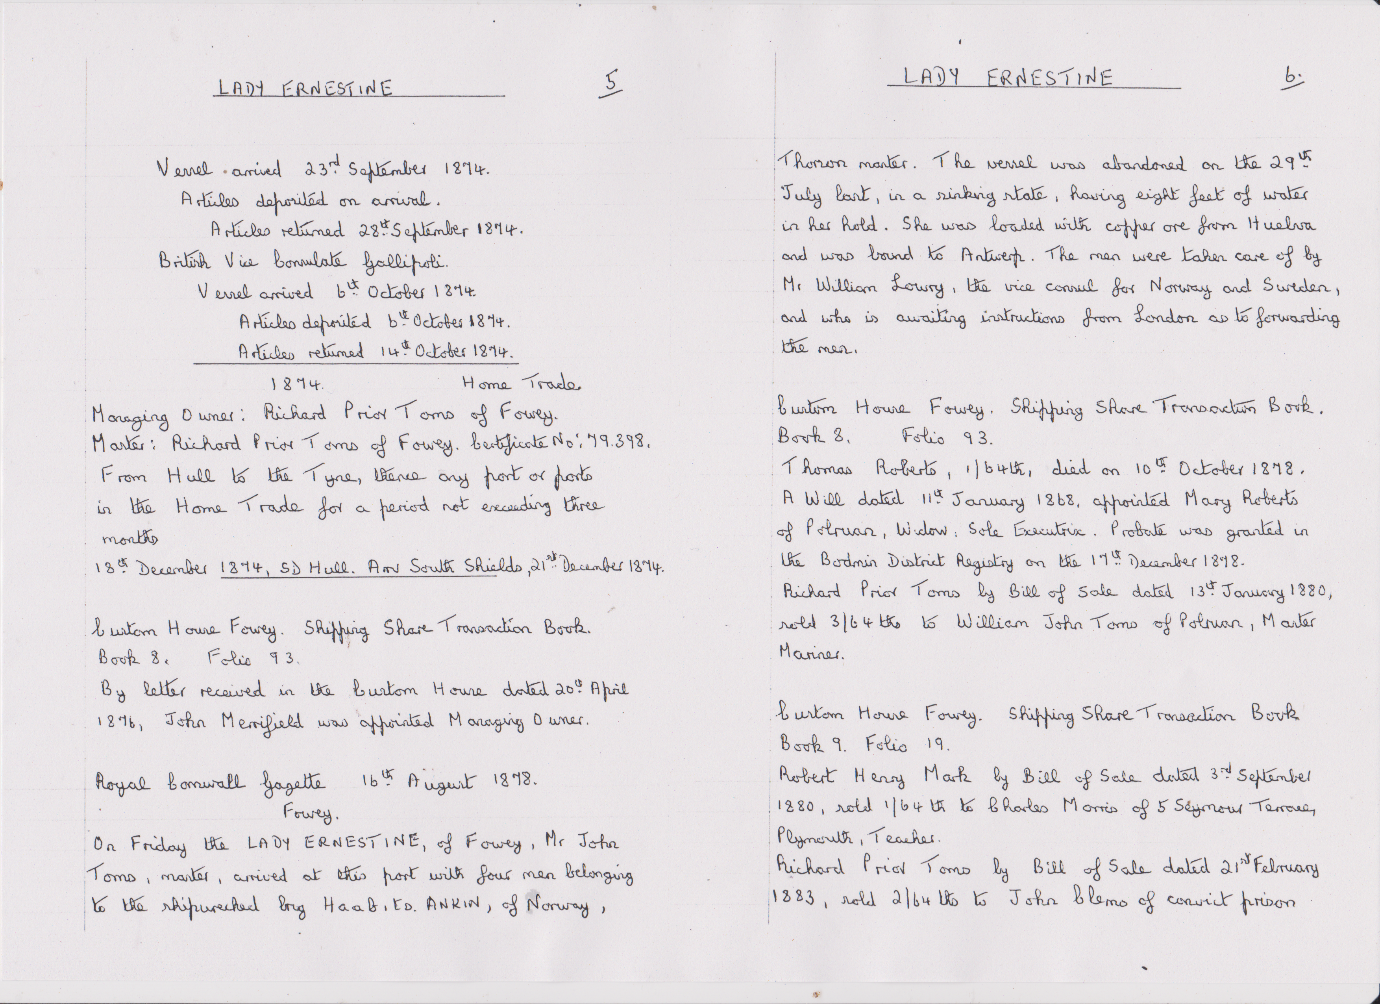 LADY ERNESTINE 5
Vessel arrived 23rd September 1874.
Articles deposited on arrival.
Articles returned 28th September 1874.
British Vice Consulate Gallipoli.
Vessel arrived 6th October 1874
Articles deposited 6th October 1874.
Articles returned 14th October 1874.
1874. Home Trade
Managing Owner: Richard Prior Toms of Fowey.
Master: Richard Prior Toms of Fowey. Certificate No: 79.398.
From Hull to the Tyne, thence any port or ports
in the Home Trade for a period not exceeding three
months
18th December 1874, SD Hull. Arr South Shields, 21st December 1874.
Custom House Fowey. Shipping Share Transaction Book.
Book 8. Folio 93.
By letter received in the Custom House dated 20th April
1876, John Merrifield was appointed Managing Owner.
Royal Cornwall Gazette 16th August 1878.
Fowey.
On Friday the LADY ERNESTINE, of Fowey, Mr John
Toms, master, arrived at this port with four men belonging
to the shipwrecked brig Haab, ANKIN, of Norway,
LADY ERNESTINE 6.
Thorson master. The vessel was abandoned on the 29th
July last, in a sinking state, having eight feet of water
in her hold. She was loaded with copper ore from Huelva
and was bound to Antwerp. The men were taken care of by
Mr William Lowry, the vice consul for Norway and Sweden,
and who is awaiting instructions from London as to forwarding
the men.
Custom House Fowey. Shipping Share Transaction Book.
Book 8. Folio 93.
Thomas Roberts, 1/64th, died on 10th October 1878.
A Will dated 11th January 1868, appointed Mary Roberts
of Polruan, Widow: Sole Executrix. Probate was granted in
the Bodmin District Registry on the 17th December 1878.
Richard Prior Toms by Bill of Sale dated 13th January 1880,
sold 3/64ths to William John Toms of Polruan, Master
Mariner.
Custom House Fowey. Shipping Share Transaction Book
Book 9. Folio 19.
Robert Henry Mark by Bill of Sale dated 3rd September
1880, sold 1/64th to Charles Morris of 5 Seymour Terrace,
Plymouth, Teacher.
Richard Prior Toms by Bill of Sale dated 21st February
1883, sold 2/64ths to John Clemo of convict prison